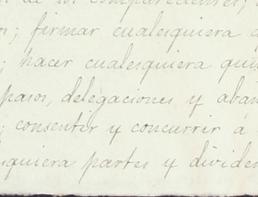 de los comparecientes;
os; firmar cualesquiera
; hacer cualesquiera qui
pasos, delegaciones y aban
; consentir y concurrir á
squiera partes y dividen